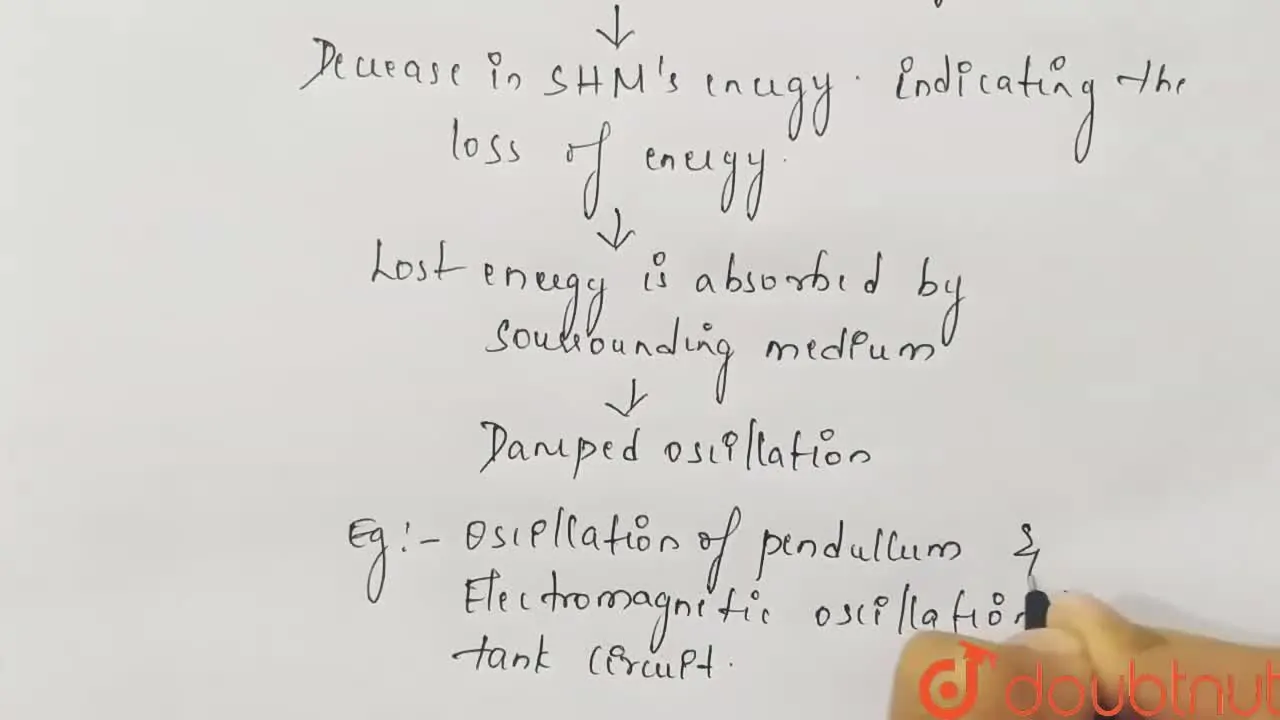 ↓
Decrease in SHM's energy. indicating the
loss of energy.
↓
Lost energy is absorbed by
sourrounding medium
↓
Damped oscillation
Eg:- Oscillation of pendullum &
Electromagnetic oscillation
tank circuit.
doubtnut